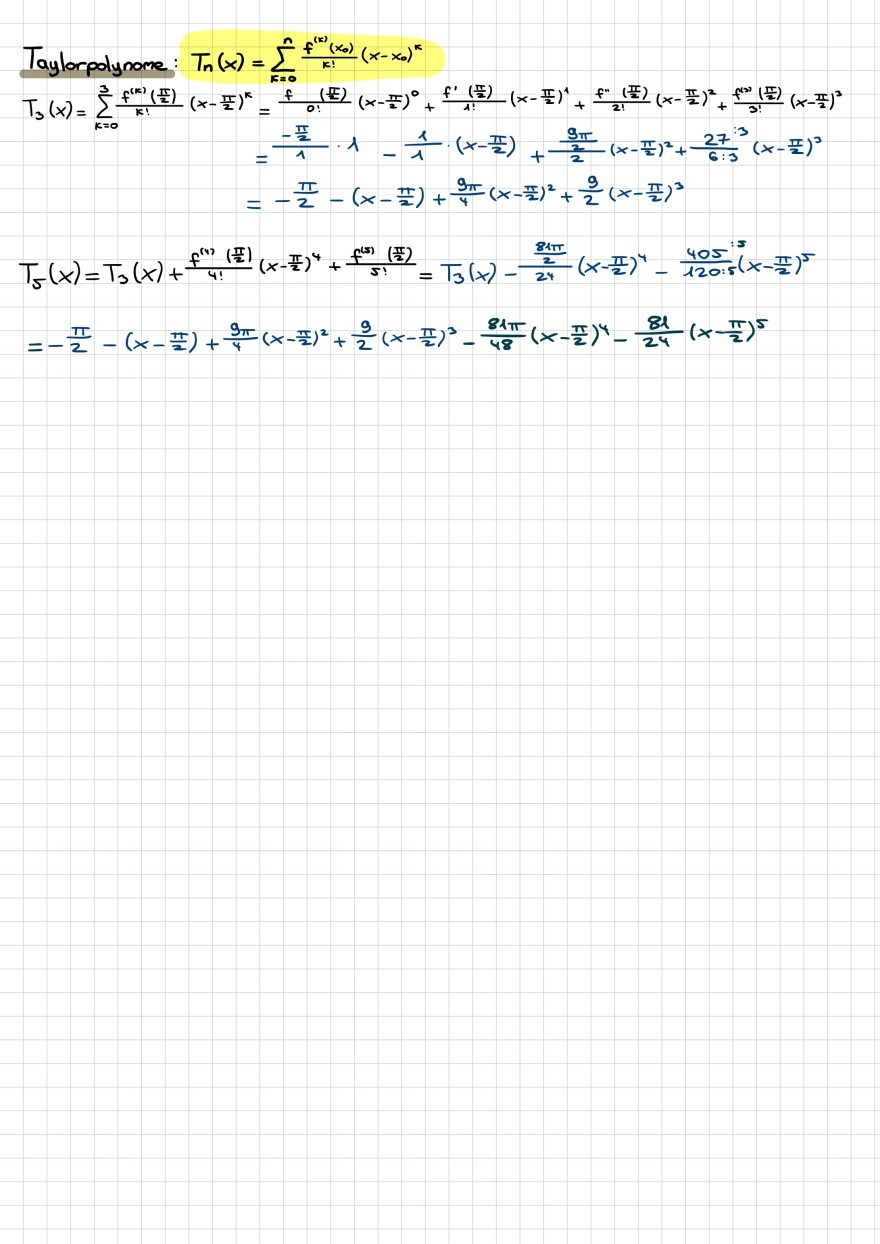 Taylorpolynome: Tₙ(x) = ∑_{k=0}^{n} f^{(k)}(x₀)/k! (x-x₀)^k
T₃(x) = ∑_{k=0}^{3} f^{(k)}(π/2)/k! (x-π/2)^k = f(π/2)/0! (x-π/2)⁰ + f'(π/2)/1! (x-π/2)¹ + f''(π/2)/2! (x-π/2)² + f^{(3)}(π/2)/3! (x-π/2)³
= (-π/2)/1 · 1 - 1/1 · (x-π/2) + (9π/2)/2 (x-π/2)² + 27:3/6:3 (x-π/2)³
= -π/2 - (x-π/2) + 9π/4 (x-π/2)² + 9/2 (x-π/2)³
T₅(x) = T₃(x) + f^{(4)}(π/2)/4! (x-π/2)⁴ + f^{(5)}(π/2)/5! = T₃(x) - (81π/2)/24 (x-π/2)⁴ - 405:5/120:5 (x-π/2)⁵
= -π/2 - (x-π/2) + 9π/4 (x-π/2)² + 9/2 (x-π/2)³ - 81π/48 (x-π/2)⁴ - 81/24 (x-π/2)⁵